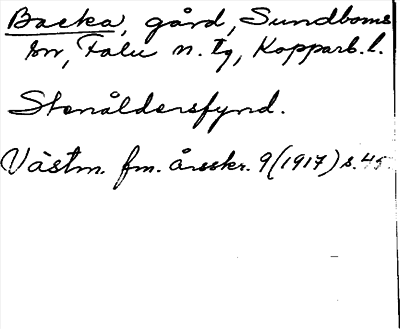 Backa, gård, Sundborns
sn, Falu n. tg, Kopparb. l.
Stenåldersfynd.
Västm. fm. årsskr. 9 (1917) s. 45